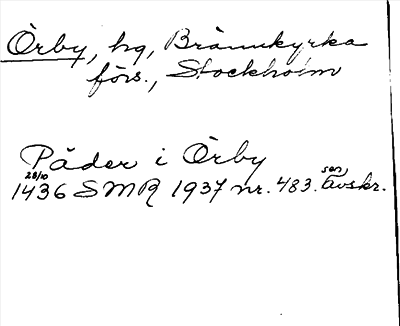 Örby, hg, Brännkyrka
förs., Stockholm
Påder i Örby
28/10 sen.
1436 SMR 1937 nr. 483. avskr.